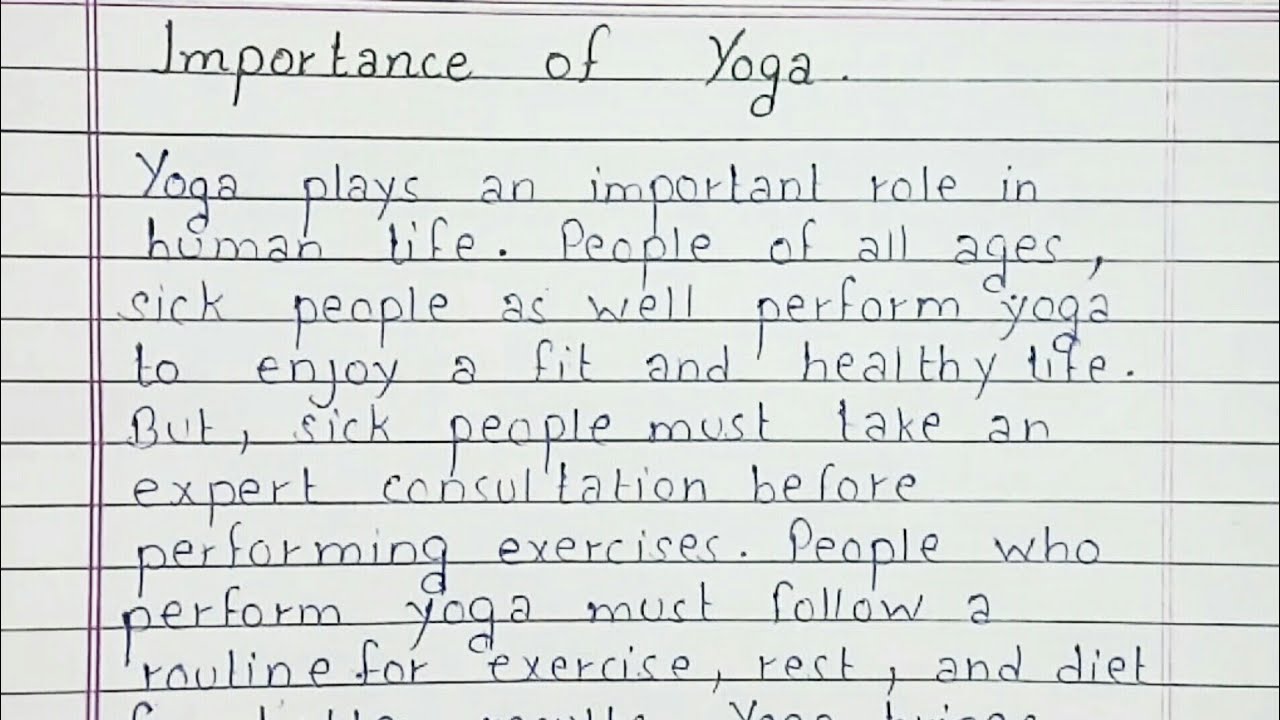 Importance of Yoga.
Yoga plays an important role in
human life. People of all ages,
sick people as well perform yoga
to enjoy a fit and healthy life.
But, sick people must take an
expert consultation before
performing exercises. People who
perform yoga must follow a
routine for exercise, rest, and diet
Yoga